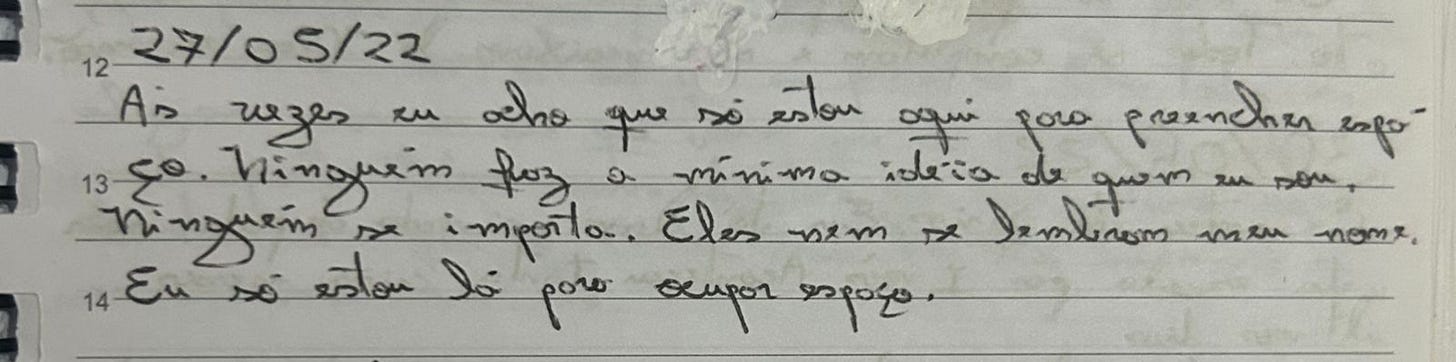 27/05/22
12
Às vezes eu acho que só estou aqui para preencher espa-
13 ço. Ninguém faz a mínima idéia de quem eu sou.
Ninguém se importa. Eles nem se lembram meu nome.
14 Eu só estou lá para ocupar espaço.